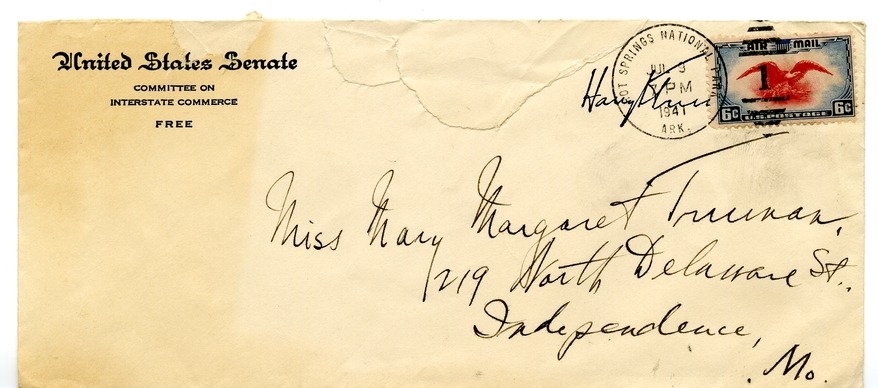 United States Senate
COMMITTEE ON
INTERSTATE COMMERCE
FREE
HOT SPRINGS NATIONAL
JUL 3
7 PM
1941
ARK.
1
AIR MAIL
6¢ U.S. POSTAGE 6¢
Miss Mary Margaret Truman,
219 North Delaware St.,
Independence,
Mo.